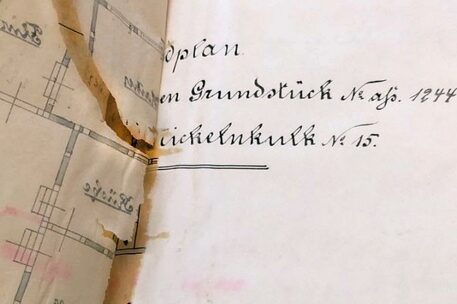 dplan
en Grundstück No. ass. 1244
eickelnkulk No. 15.
Küche